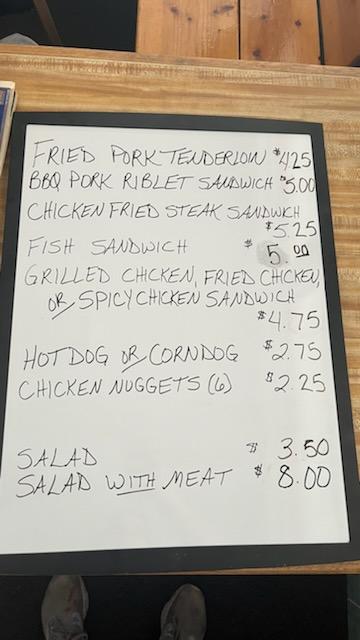 FRIED PORK TENDERLOIN $4.25
BBQ PORK RIBLET SANDWICH $5.00
CHICKEN FRIED STEAK SANDWICH
$5.25
FISH SANDWICH $5.00
GRILLED CHICKEN, FRIED CHICKEN,
OR SPICY CHICKEN SANDWICH
$4.75
HOT DOG OR CORNDOG $2.75
CHICKEN NUGGETS (6) $2.25
SALAD $3.50
SALAD WITH MEAT $8.00